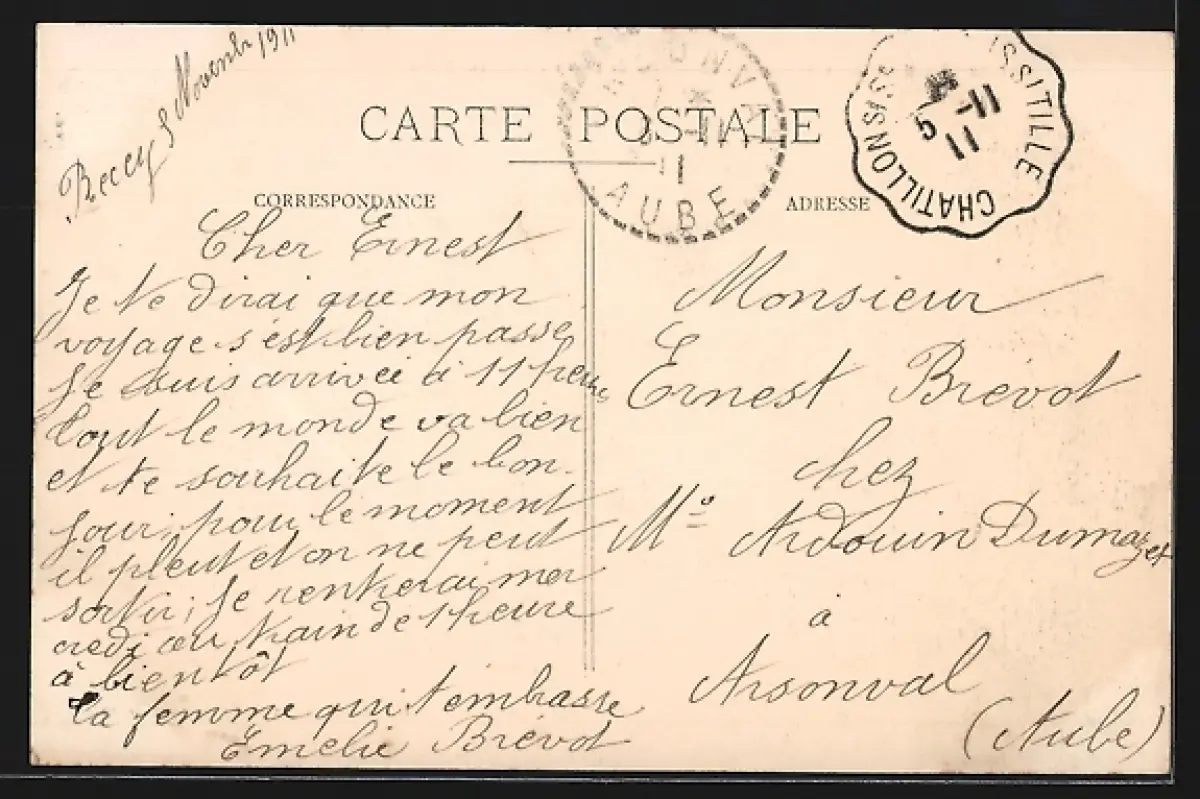 Recey 5 Novembr 1911
CARTE POSTALE
CORRESPONDANCE
ADRESSE
AUBE
11
CHATILLON S/S
IS SITILLE
5-11
11
Cher Ernest
Je te dirai que mon
voyage s'est bien passe
Je suis arrivée à 11 heures
tout le monde va bien
et te souhaite le bon-
jour, pour le moment
il pleut et on ne peut
sortir; Je rentrerai mer
credi au train de 1 heure
à bientôt
Ta femme qui t'embrasse
Emelie Brévot
Monsieur
Ernest Brévot
chez
Me Ardouin Dumazet
à
Arsonval
(Aube)